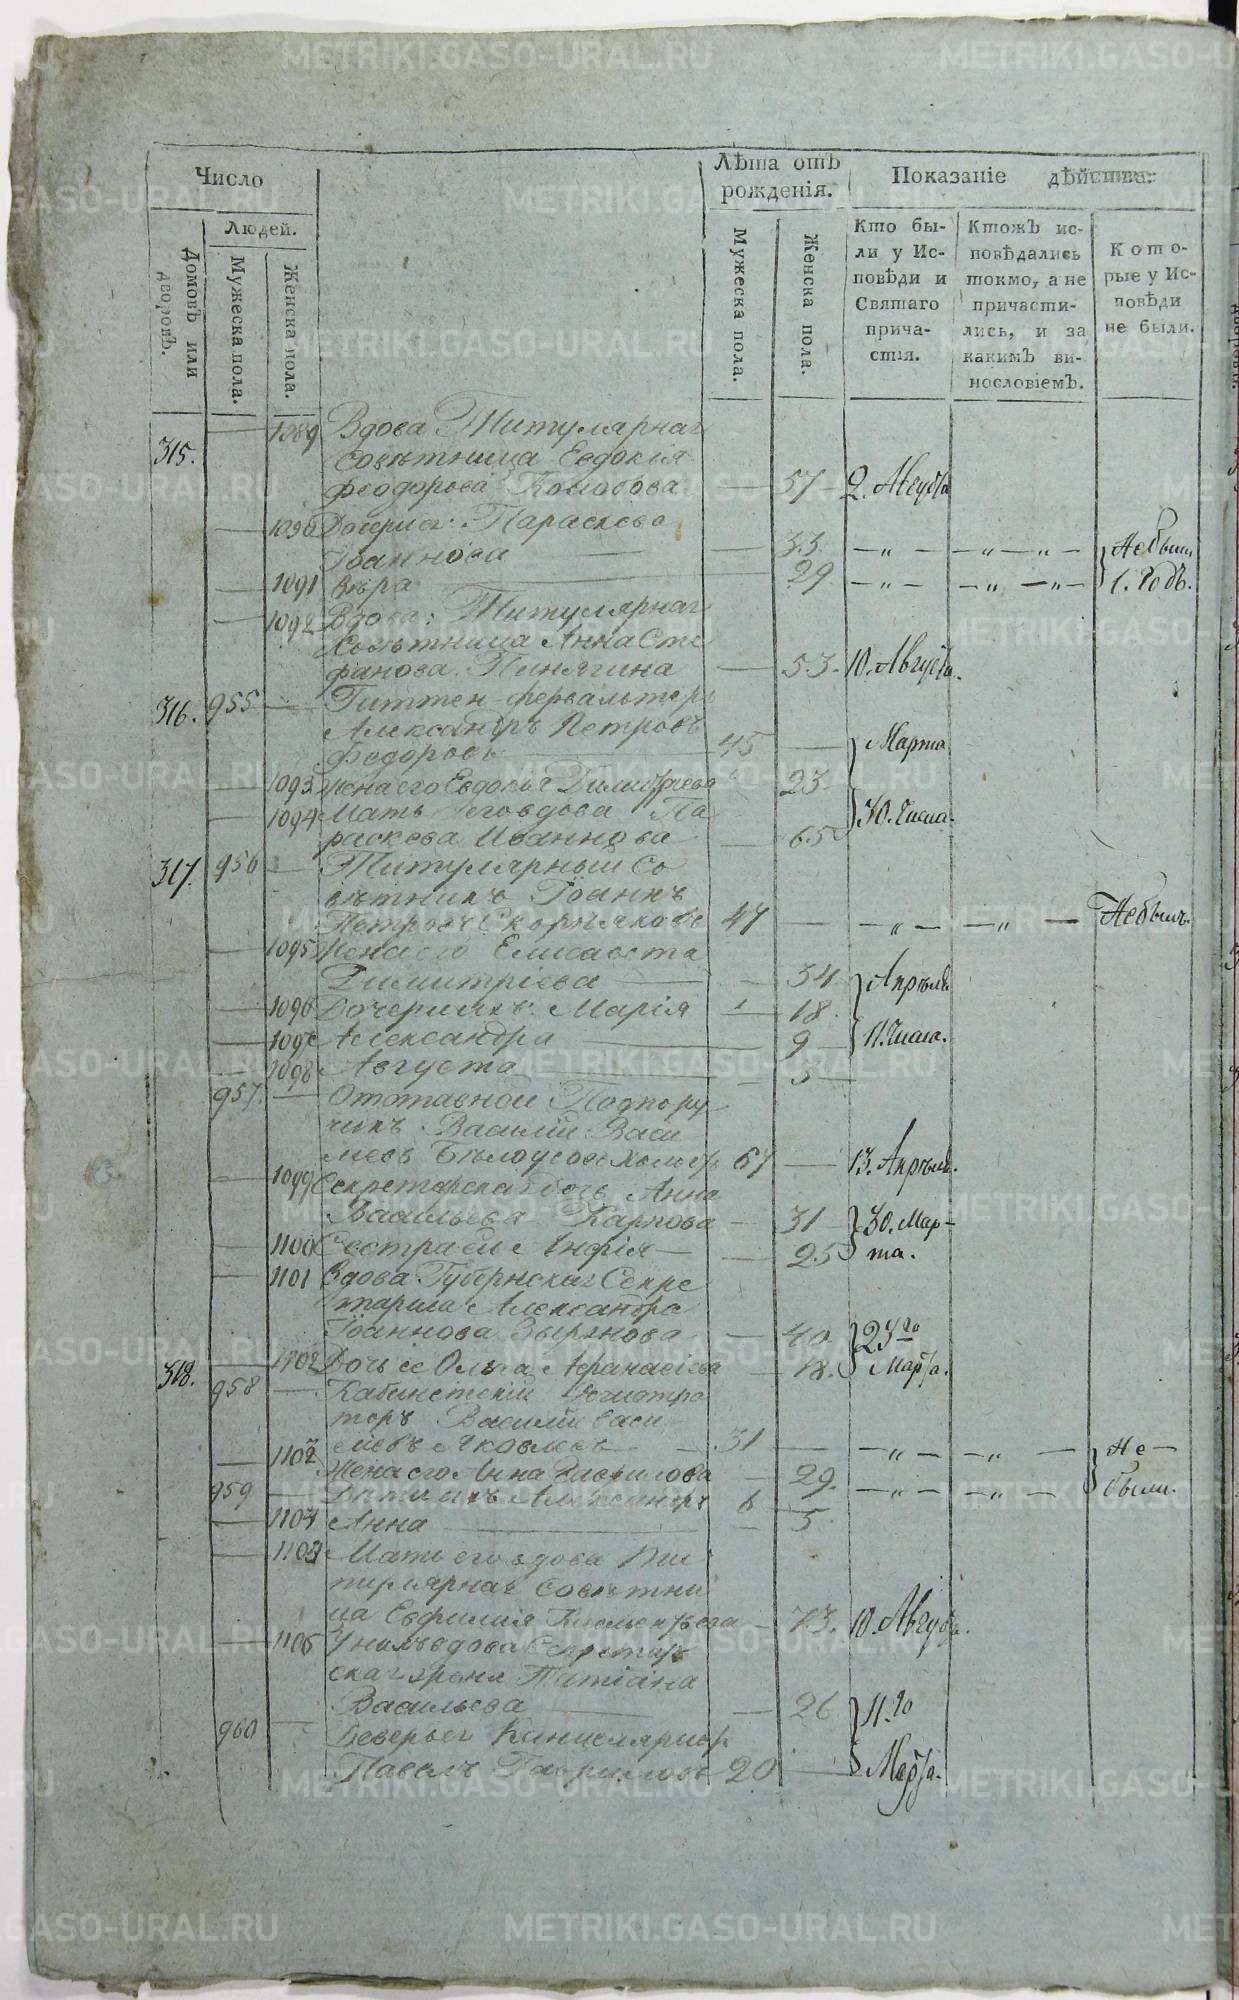 Число
Лѣта отъ рожденія.
Показаніе дѣйства:
Людей.
Домовъ или дворовъ.
Мужеска пола.
Женска пола.
Мужеска пола.
Женска пола.
Кто бы-
ли у Ис-
повѣди и
Святаго
прича-
стія.
Ктожъ ис-
повѣдались
токмо, а не
причасти-
лись, и за
какимъ ви-
нословіемъ.
Кото-
рые у Ис-
повѣди
не были.
315. — 1089 Вдова Титулярная
Совѣтница Евдокія
Феодорова — 57 2. Августа
— 1090 Дочери ея: Параскева
Іоаннова — 33. — „ — — „ — „ — Небыли
— 1091 Вѣра — 29 — „ — — „ — „ — 1. Годъ.
— 1092 Вдова: Титулярная
Совѣтница Анна Сте
фанова Пинягина — 53. 10. Августа.
316. 955 — Гиттен-фервальтеръ
Александръ Петровъ
Федоровъ — 45 — Марта
— 1093 Жена его Евдокія Димитріева 23
— 1094 Мать его вдова Па
раскева Иваннова — 65 30. Числа.
317. 956 — Титулярный Со
вѣтникъ Іоаннъ
Петровъ Скорняковъ 47 — — „ — — „ — Небылъ.
— 1095 Жена его Елисавета
Димитріева — 34 Апрѣля
— 1096 Дочери ихъ: Марія — 18.
— 1097 Александра — 9 11. Числа.
— 1098 Августа — 3
957. — Отставной Подпору
чикъ Василій Васи
льевъ Бѣлоусовъ холостъ 67 — 13. Апрѣля.
— 1099 Секретарская дочь Анна
Васильева Карпова — 31 30. Мар-
— 1100 Сестра ея Анфія — 25 та.
— 1101 Вдова Губернская Секре
тарша Александра
Іоаннова Зырянова — 40. 23го
— 1102 Дочь ее Ольга Афанасіева — 18. Марта.
318. 958 — Кабинетскій Регистра
торъ Василій Васи
льевъ Яковлевъ 31 — — „ — — „ — Не-
— Жена его Анна Гаврилова — 29. были.
959 — Дѣти ихъ Александръ 6 — „ — — „ —
— 1104 Анна — 5
— Мать его вдова Ти
тулярная Совѣтни
ца Евфимія Климентьева — 73. 10. Августа.
— 1106 У нихъ вдова Секретар
ская Татіана
Васильева — 26 11.го
960 — Канцеляристъ
Павелъ Гавриловъ 20 — Марта.
METRIKI.GASO-URAL.RU